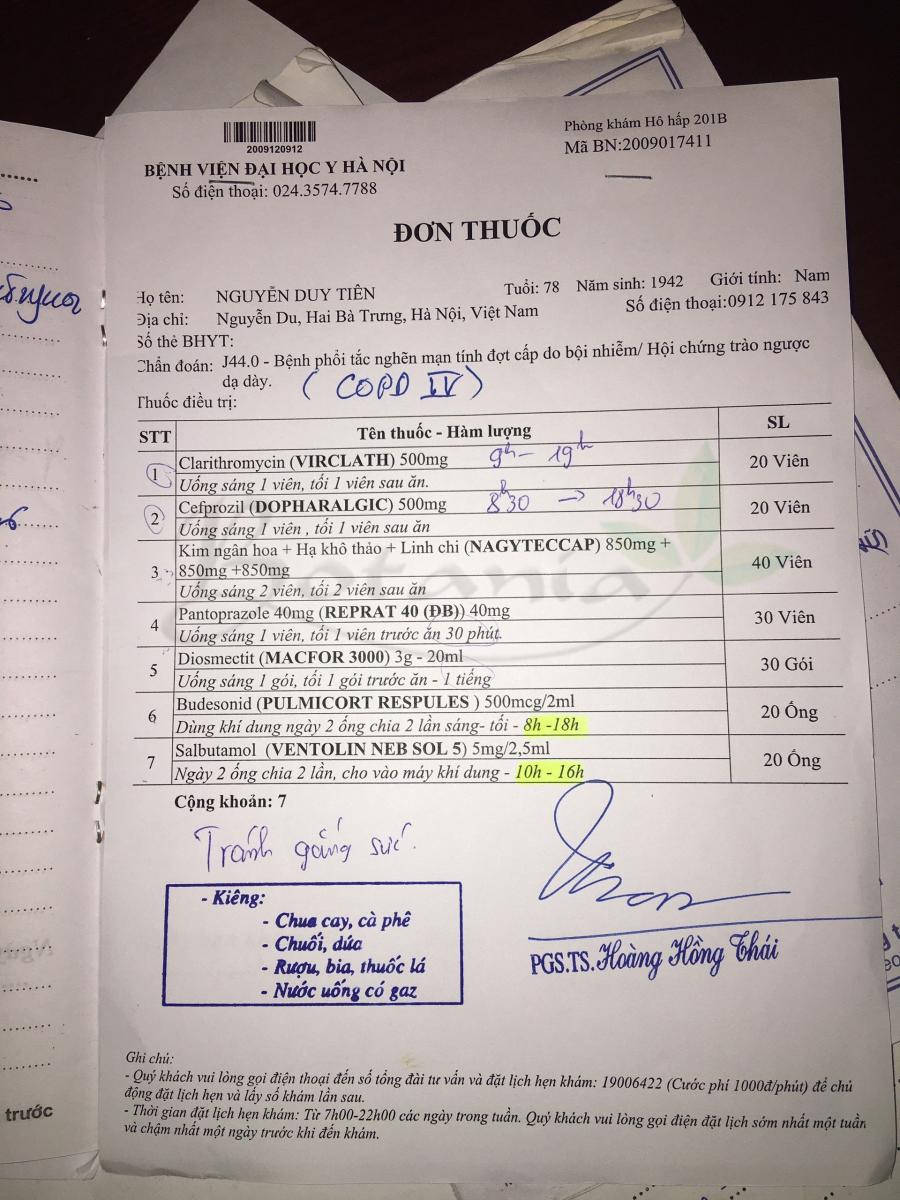 2009120912
BỆNH VIỆN ĐẠI HỌC Y HÀ NỘI
Số điện thoại: 024.3574.7788
Phòng khám Hô hấp 201B
Mã BN:2009017411
ĐƠN THUỐC
Họ tên: NGUYỄN DUY TIÊN Tuổi: 78 Năm sinh: 1942 Giới tính: Nam
Địa chỉ: Nguyễn Du, Hai Bà Trưng, Hà Nội, Việt Nam Số điện thoại:0912 175 843
Số thẻ BHYT:
Chẩn đoán: J44.0 - Bệnh phổi tắc nghẽn mạn tính đợt cấp do bội nhiễm/ Hội chứng trào ngược
dạ dày. (COPD IV)
Thuốc điều trị:
STT Tên thuốc - Hàm lượng SL
1 Clarithromycin (VIRCLATH) 500mg 9h - 19h 20 Viên
Uống sáng 1 viên, tối 1 viên sau ăn.
2 Cefprozil (DOPHARALGIC) 500mg 8h30 → 18h30 20 Viên
Uống sáng 1 viên , tối 1 viên sau ăn
3 Kim ngân hoa + Hạ khô thảo + Linh chi (NAGYTECCAP) 850mg +
850mg +850mg 40 Viên
Uống sáng 2 viên, tối 2 viên sau ăn
4 Pantoprazole 40mg (REPRAT 40 (ĐB)) 40mg 30 Viên
Uống sáng 1 viên, tối 1 viên trước ăn 30 phút.
5 Diosmectit (MACFOR 3000) 3g - 20ml 30 Gói
Uống sáng 1 gói, tối 1 gói trước ăn - 1 tiếng
6 Budesonid (PULMICORT RESPULES ) 500mcg/2ml 20 Ống
Dùng khí dung ngày 2 ống chia 2 lần sáng- tối - 8h -18h
7 Salbutamol (VENTOLIN NEB SOL 5) 5mg/2,5ml 20 Ống
Ngày 2 ống chia 2 lần, cho vào máy khí dung - 10h - 16h
Botania
Cộng khoản: 7
Tránh gắng sức.
- Kiêng:
- Chua cay, cà phê
- Chuối, dứa
- Rượu, bia, thuốc lá
- Nước uống có gaz
PGS.TS. Hoàng Hồng Thái
Ghi chú:
- Quý khách vui lòng gọi điện thoại đến số tổng đài tư vấn và đặt lịch hẹn khám: 19006422 (Cước phí 1000đ/phút) để chủ
động đặt lịch hẹn và lấy số khám lần sau.
- Thời gian đặt lịch hẹn khám: Từ 7h00-22h00 các ngày trong tuần. Quý khách vui lòng gọi điện đặt lịch sớm nhất một tuần
và chậm nhất một ngày trước khi đến khám.
trước